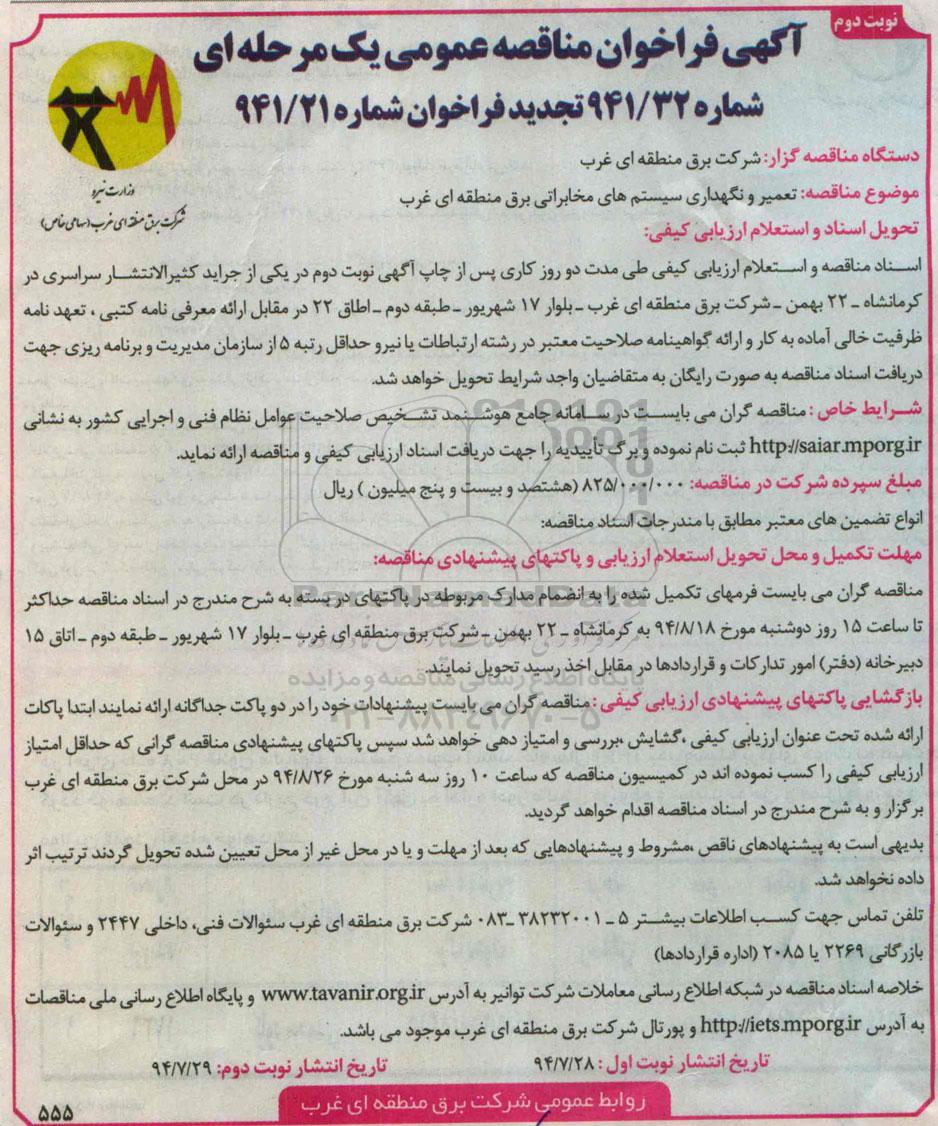 نوبت دوم
آگهی فراخوان مناقصه عمومی یک مرحله ای
شماره ۹۴۱/۳۲ تجدید فراخوان شماره ۹۴۱/۲۱
وزارت نیرو
شرکت برق منطقه ای غرب (سهامی خاص)
دستگاه مناقصه گزار: شرکت برق منطقه ای غرب
موضوع مناقصه: تعمیر و نگهداری سیستم های مخابراتی برق منطقه ای غرب
تحویل اسناد و استعلام ارزیابی کیفی:
اسناد مناقصه و استعلام ارزیابی کیفی طی مدت دو روز کاری پس از چاپ آگهی نوبت دوم در یکی از جراید کثیرالانتشار سراسری در
کرمانشاه ـ ۲۲ بهمن ـ شرکت برق منطقه ای غرب ـ بلوار ۱۷ شهریور ـ طبقه دوم ـ اطاق ۲۲ در مقابل ارائه معرفی نامه کتبی ، تعهد نامه
ظرفیت خالی آماده به کار و ارائه گواهینامه صلاحیت معتبر در رشته ارتباطات یا نیرو حداقل رتبه ۵ از سازمان مدیریت و برنامه ریزی جهت
دریافت اسناد مناقصه به صورت رایگان به متقاضیان واجد شرایط تحویل خواهد شد.
شرایط خاص : مناقصه گران می بایست در سامانه جامع هوشمند تشخیص صلاحیت عوامل نظام فنی و اجرایی کشور به نشانی
http://saiar.mporg.ir ثبت نام نموده و برگ تأییدیه را جهت دریافت اسناد ارزیابی کیفی و مناقصه ارائه نماید.
مبلغ سپرده شرکت در مناقصه: ۸۲۵/۰۰۰/۰۰۰ (هشتصد و بیست و پنج میلیون ) ریال
انواع تضمین های معتبر مطابق با مندرجات اسناد مناقصه:
مهلت تکمیل و محل تحویل استعلام ارزیابی و پاکتهای پیشنهادی مناقصه:
مناقصه گران می بایست فرمهای تکمیل شده را به انضمام مدارک مربوطه در پاکتهای در بسته به شرح مندرج در اسناد مناقصه حداکثر
تا ساعت ۱۵ روز دوشنبه مورخ ۹۴/۸/۱۸ به کرمانشاه ـ ۲۲ بهمن ـ شرکت برق منطقه ای غرب ـ بلوار ۱۷ شهریور ـ طبقه دوم ـ اتاق ۱۵
دبیرخانه (دفتر) امور تدارکات و قراردادها در مقابل اخذ رسید تحویل نمایند.
بازگشایی پاکتهای پیشنهادی ارزیابی کیفی : مناقصه گران می بایست پیشنهادات خود را در دو پاکت جداگانه ارائه نمایند ابتدا پاکات
ارائه شده تحت عنوان ارزیابی کیفی ،گشایش ،بررسی و امتیاز دهی خواهد شد سپس پاکتهای پیشنهادی مناقصه گرانی که حداقل امتیاز
ارزیابی کیفی را کسب نموده اند در کمیسیون مناقصه که ساعت ۱۰ روز سه شنبه مورخ ۹۴/۸/۲۶ در محل شرکت برق منطقه ای غرب
برگزار و به شرح مندرج در اسناد مناقصه اقدام خواهد گردید.
بدیهی است به پیشنهادهای ناقص ،مشروط و پیشنهادهایی که بعد از مهلت و یا در محل غیر از محل تعیین شده تحویل گردند ترتیب اثر
داده نخواهد شد.
تلفن تماس جهت کسب اطلاعات بیشتر ۵ ـ ۳۸۲۳۲۰۰۱ ـ ۰۸۳ شرکت برق منطقه ای غرب سئوالات فنی، داخلی ۲۴۴۷ و سئوالات
بازرگانی ۲۲۶۹ یا ۲۰۸۵ (اداره قراردادها)
خلاصه اسناد مناقصه در شبکه اطلاع رسانی معاملات شرکت توانیر به آدرس www.tavanir.org.ir و پایگاه اطلاع رسانی ملی مناقصات
به آدرس http://iets.mporg.ir و پورتال شرکت برق منطقه ای غرب موجود می باشد.
تاریخ انتشار نوبت اول : ۹۴/۷/۲۸ تاریخ انتشار نوبت دوم: ۹۴/۷/۲۹
روابط عمومی شرکت برق منطقه ای غرب
۵۵۵
ParsNamadData
پایگاه اطلاع رسانی مناقصه و مزایده
۰۲۱-۸۸۳۴۹۶۷۰-۵